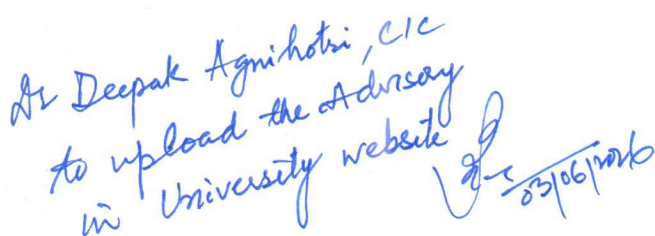 Dr Deepak Agnihotri, CIC
to upload the Advisory
in University website
03/06/2026